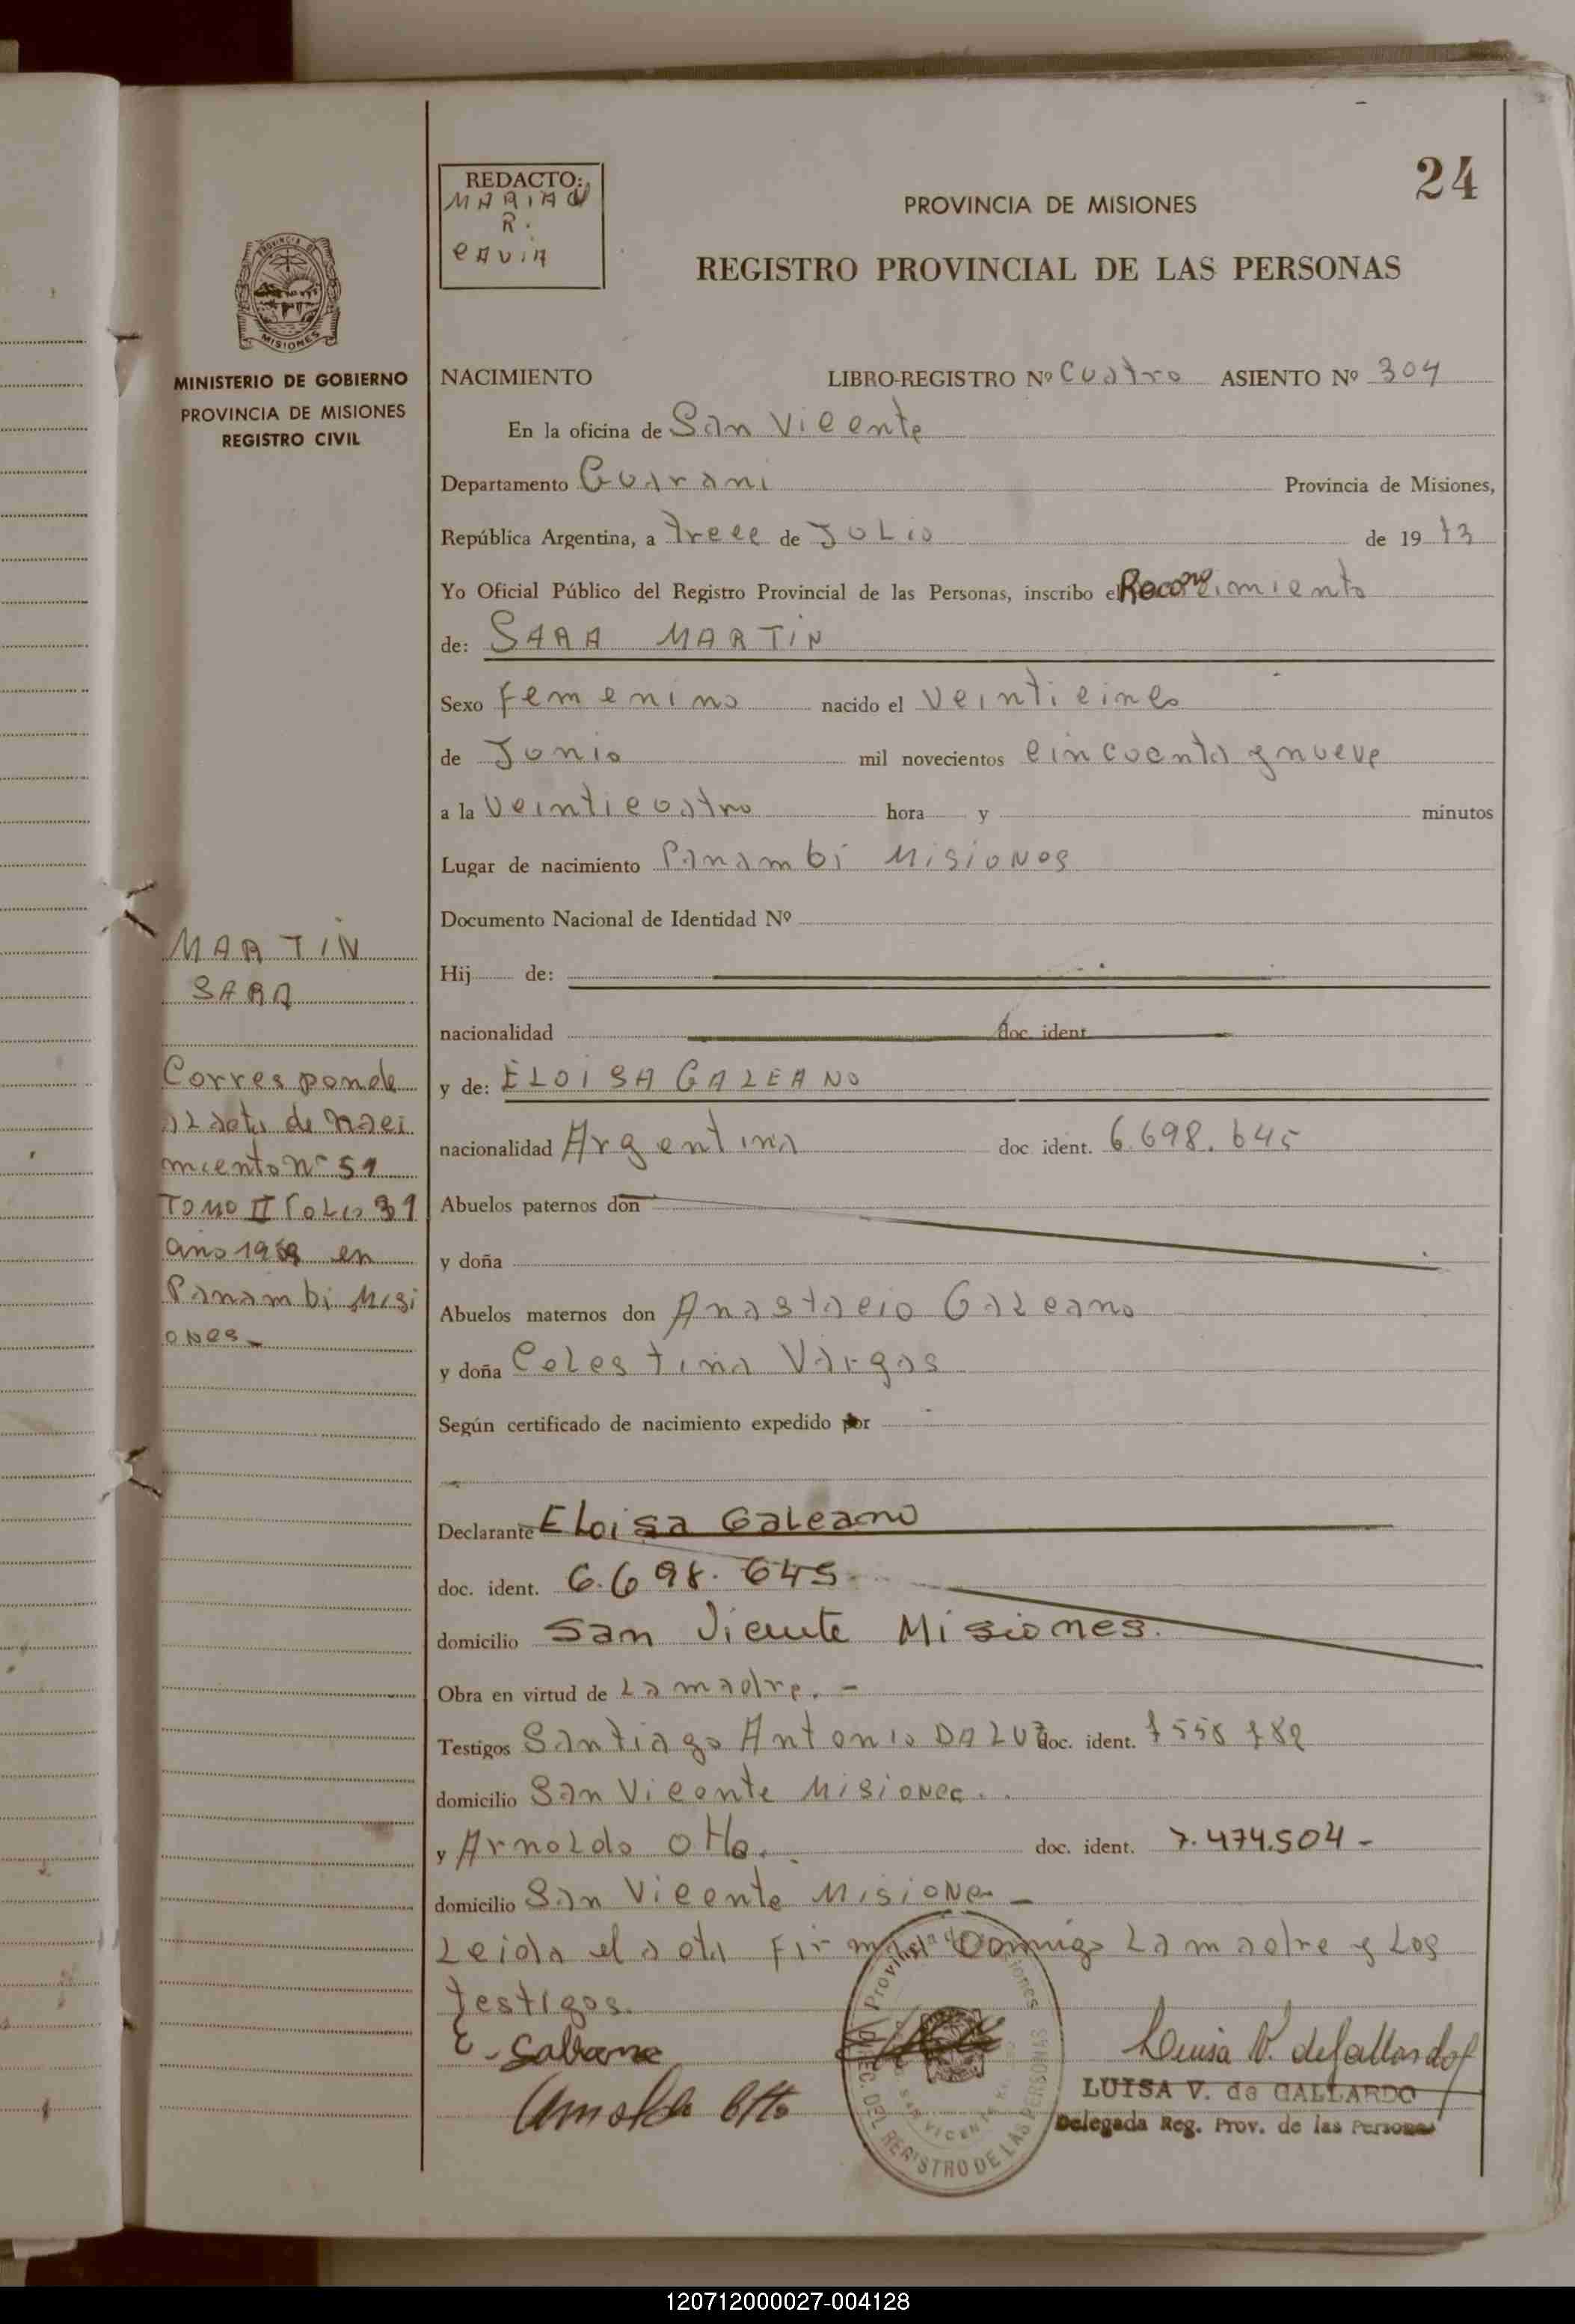 24
REDACTO:
MARIAN
R.
PROVINCIA DE MISIONES
REGISTRO PROVINCIAL DE LAS PERSONAS
PROVINCIA DE
MISIONES
MINISTERIO DE GOBIERNO
PROVINCIA DE MISIONES
REGISTRO CIVIL
NACIMIENTO LIBRO-REGISTRO Nº Cuatro ASIENTO Nº 304
En la oficina de San Vicente
Departamento Guarani Provincia de Misiones,
República Argentina, a trece de JULio de 1973
Yo Oficial Público del Registro Provincial de las Personas, inscribo el Reconocimiento
de: SARA MARTIN
Sexo femenino nacido el Veinticinco
de Junio mil novecientos cincuenta y nueve
a la Veinticuatro hora y minutos
Lugar de nacimiento Panambi Misiones
Documento Nacional de Identidad Nº
Hij de:
nacionalidad doc. ident.
y de: ELOISA GALEANO
nacionalidad Argentina doc ident. 6.698.645
Abuelos paternos don
y doña
Abuelos maternos don Anastacio Galeano
y doña Celestina Vargas
Según certificado de nacimiento expedido por
Declarante Eloisa Galeano
doc. ident. 6.698.645
domicilio San Vicente Misiones.
Obra en virtud de La madre. -
Testigos Santiago Antonio DALUZ doc. ident. 7558782
domicilio San Vicente Misiones.
y Arnoldo Otto. doc. ident. 7.474.504 -
domicilio San Vicente Misiones -
Leida el acta firma Conmigo La madre y Los
testigos.
MARTIN
SARA
Corresponde
al acta de naci
miento nº 51
TOMO II Folio 31
año 19 en
Panambi Misi
ones -
Arnoldo Otto
Luisa V. de Gallardo
LUISA V. de GALLARDO
Delegada Reg. Prov. de las Personas
DEL REGISTRO DE LAS PERSONAS
SAN VICENTE
120712000027-004128